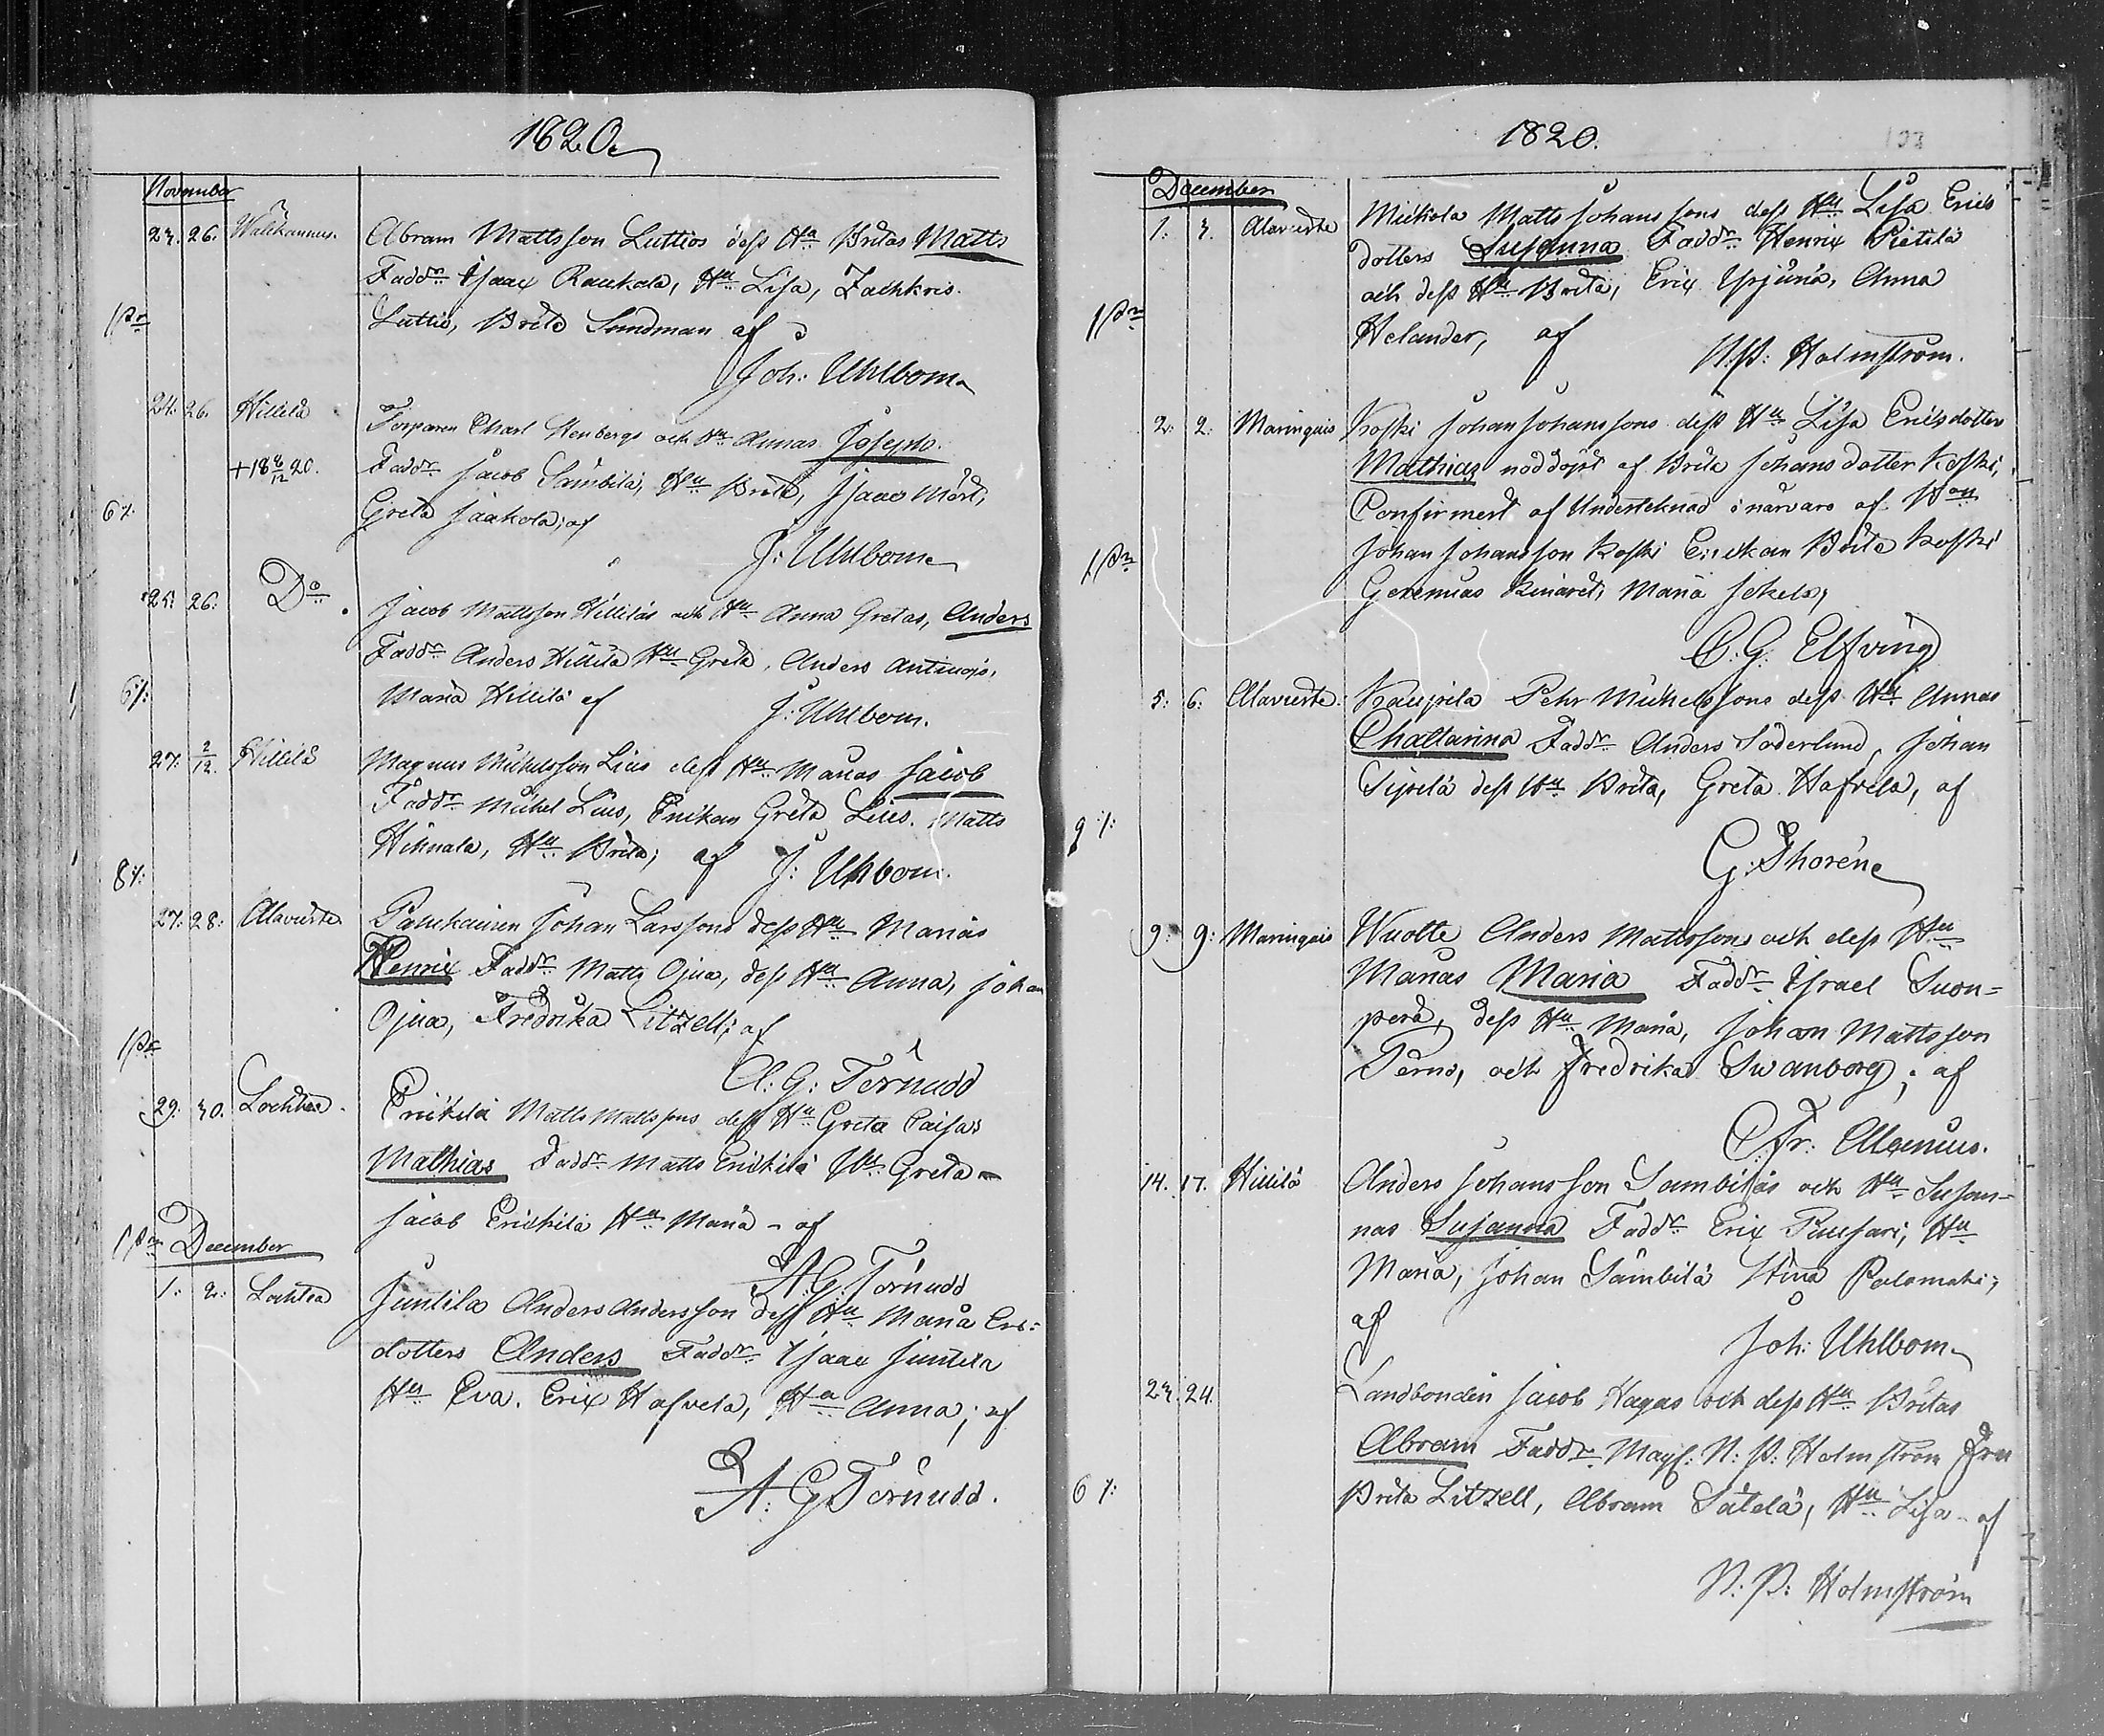 1820.
November
23. 26. Walikannus. Abram Mattsson Luttios dess Hu Britas Matts
Faddr Isaax Raukola, Hu Lisa, Zachkris
Luttio, Brita Sundman af
Joh: Uhlbom
24. 26. Hillilä Torparen Charl Stenbergs och Hu Annas Joseph.
+18 8/12 20. Faddr Jacob Sämbilä, Hu Brita, Isaac Mårt,
Greta Jaakola; af
6%.
J: Uhlbom
25. 26. Do Jacob Mattsson Hilliläs och Hu Anna Gretas, Anders
Faddr Anders Hillilä Hu Greta, Anders
6%. Maria Hillilä af J: Uhlbom.
27. 2/12. Hillilä Magnus Michelsson Lius dess Hu Marias Jacob
Faddr Michel Lius, Enikan Greta Lius. Matts
Hihnala, Hu Brita; af J: Uhlbom.
8%.
27. 28. Alavieska Palukainen Johan Larssons dess Hu Marias
Henrix Faddr Matts Ojua, dess Hu Anna, Johan
Ojua, Fredrika Litzell; af
A: G: Törnudd
29. 30. Lochtea. Erickilä Matts Mattssons dess Hu Greta Caisas
Mathias Faddr Matts Erickilä Hu Greta
Jacob Erickilä Hu Maria - af
A. G. Törnudd
December
1. 2. Lochtea Juntila Anders Andersson dess Hu Maria Ers=
dotters Anders Faddr Isaac Juntila
Hu Eva. Erix Hafvela, Hu Anna; af
A: G Törnudd.
1820.
103
December
1. 3. Alavieska Mickola Matts Johanssons dess Hu Lisa Erics
dotters Susanna Faddr Henrix Pietilä
och dess Hu Brita, Erix Yrjänä, Anna
Helander, af
N. P: Holmström.
2. 2. Marinqais Koski Johan Johanssons dess Hu Lisa Ericsdotter
Mathias nöddöpt af Brita Johansdotter Koski,
Confirmert af Underteknad i närvaro af
Johan Johansson Koski Enikan Brita Koski
Geremias Kinaret, Maria Jokela,
C: G: Elfving
5. 6. Alavieska. Kaupila Pehr Michelssons dess Hu Annas
Chattarina Faddr Anders Söderlund, Johan
Sipilä dess Hu Brita, Greta Hafvela, af
9%.
G: Thoren
9. 9. Marinqais Wuolte Anders Mattssons och dess Hu
Marias Maria Faddr Israel Suon=
perä, dess Hu Maria, Johan Mattsson
Perno, och Fredrika Swanborg; af
C. Fr: Alcenius.
14. 17. Hillilä Anders Johansson Sambiläs och Hu Susan=
nas Susanna Faddr Erix Puusari, Hu
Maria, Johan Sämbilä Stina Palomaki;
af
Joh: Uhlbom
23. 24. Landbonden Jacob Hagas och dess Hu Britas
Abram Faddr Mag: N: P: Holmström Fru
Brita Litzell, Abram Sätelä, Hu Lisa - af
6%.
N: P: Holmström